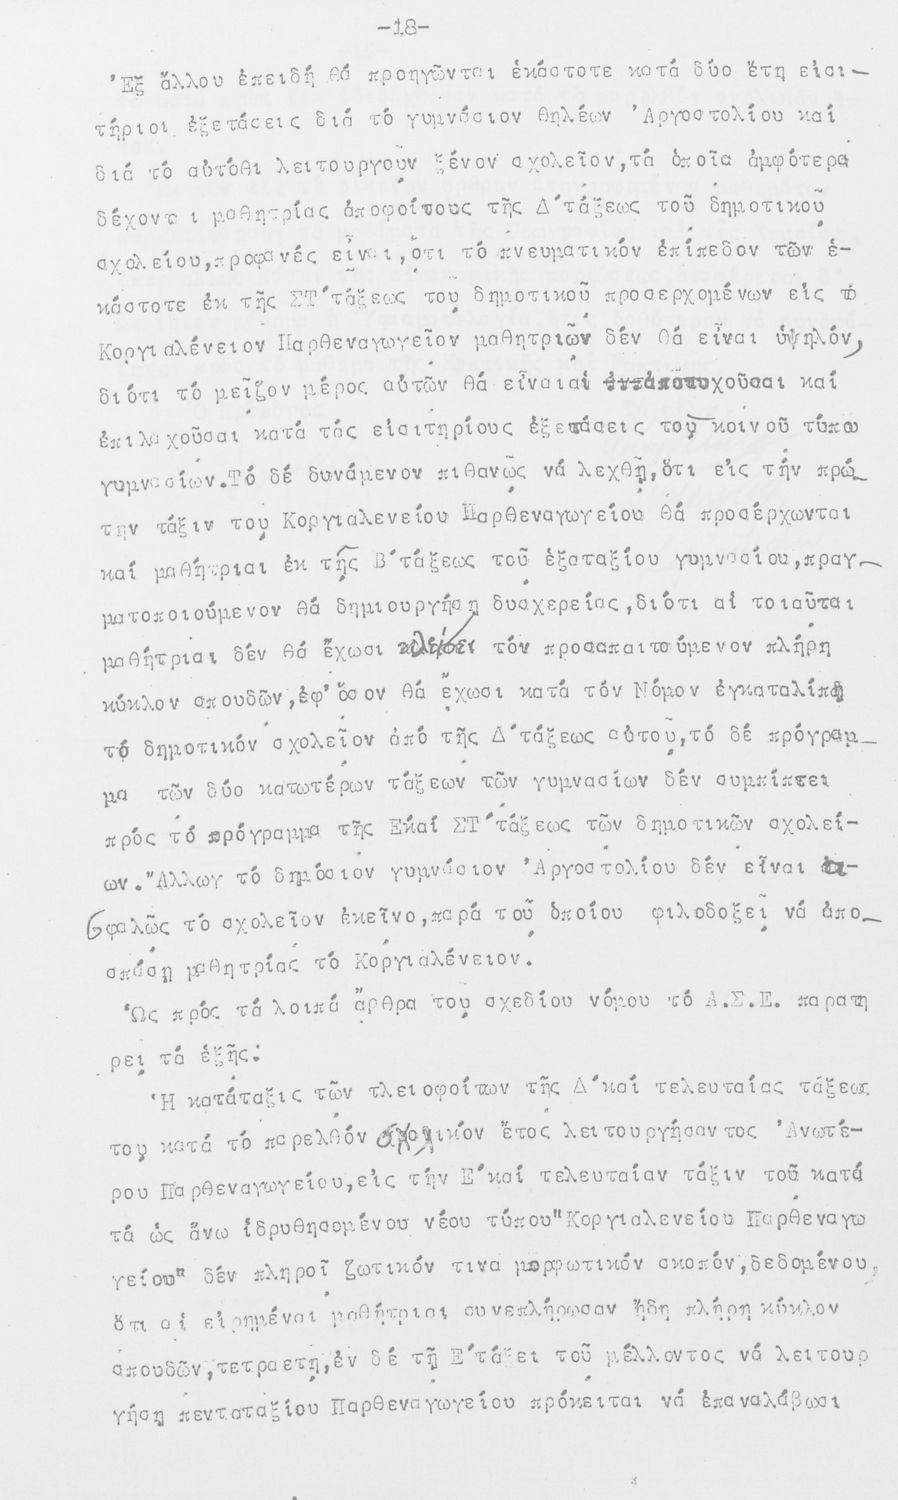 -18-
Ἐξ ἄλλου ἐπειδή θά προηγῶνται ἑκάστοτε κατά δύο ἔτη εἰσι-
τήριοι ἐξετάσεις διά τό γυμνάσιον θηλέων Ἀργοστολίου καί
διά τό αὐτόθι λειτουργοῦν ξένον σχολεῖον,τά ὁποῖα ἀμφότερα
δέχονται μαθητρίας ἀποφοίτους τῆς Δ΄τάξεως τοῦ δημοτικοῦ
σχολείου,προφανές εἶναι,ὅτι τό πνευματικόν ἐπίπεδον τῶν ἑ-
κάστοτε ἐκ τῆς ΣΤ΄τάξεως τοῦ δημοτικοῦ προσερχομένων εἰς τό
Κοργιαλένειον Παρθεναγωγεῖον μαθητριῶν δέν θά εἶναι ὑψηλόν,
διότι τό μεῖζον μέρος αὐτῶν θά εἶναι αἱ ἀποτυχοῦσαι καί
ἐπιλαχοῦσαι κατά τάς εἰσιτηρίους ἐξετάσεις τοῦ κοινοῦ τύπου
γυμνασίων.Τό δέ δυνάμενον πιθανῶς νά λεχθῇ,ὅτι εἰς τήν πρώ-
την τάξιν τοῦ Κοργιαλενείου Παρθεναγωγείου θά προσέρχωνται
καί μαθήτριαι ἐκ τῆς Β΄τάξεως τοῦ ἑξαταξίου γυμνασίου,πραγ-
ματοποιούμενον θά δημιουργήσῃ δυσχερείας,διότι αἱ τοιαῦται
μαθήτριαι δέν θά ἔχωσι κλείσει τόν προσαπαιτούμενον πλήρη
κύκλον σπουδῶν,ἐφ' ὅσον θά ἔχωσι κατά τόν Νόμον ἐγκαταλίπῃ
τό δημοτικόν σχολεῖον ἀπό τῆς Δ΄τάξεως αὐτοῦ,τό δέ πρόγραμ-
μα τῶν δύο κατωτέρων τάξεων τῶν γυμνασίων δέν συμπίπτει
πρός τό πρόγραμμα τῆς Εκαί ΣΤ΄τάξεως τῶν δημοτικῶν σχολεί-
ων.Ἄλλωγ τό δημόσιον γυμνάσιον Ἀργοστολίου δέν εἶναι ἀ-
σφαλῶς τό σχολεῖον ἐκεῖνο,παρά τοῦ ὁποίου φιλοδοξεῖ νά ἀπο-
σπάσῃ μαθητρίας τό Κοργιαλένειον.
Ὡς πρός τά λοιπά ἄρθρα τοῦ σχεδίου νόμου τό Α.Σ.Ε. παρατη
ρεῖ τά ἑξῆς:
Ἡ κατάταξις τῶν τλειοφοίτων τῆς Δ΄καί τελευταίας τάξεως
τοῦ κατά τό παρελθόν σχολικόν ἔτος λειτουργήσαντος Ἀνωτέ-
ρου Παρθεναγωγείου,εἰς τήν Ε΄καί τελευταίαν τάξιν τοῦ κατά
τά ὡς ἄνω ἱδρυθησομένου νέου τύπου"Κοργιαλενείου Παρθεναγω
γείου" δέν πληροῖ ζωτικόν τινα μορφωτικόν σκοπόν,δεδομένου,
ὅτι αἱ εἰρημέναι μαθήτριαι συνεπλήρωσαν ἤδη πλήρη κύκλον
σπουδῶν,τετραετῆ,ἐν δέ τῇ Ε΄τάξει τοῦ μέλλοντος νά λειτουρ
γήσῃ πενταταξίου Παρθεναγωγείου πρόκειται νά ἐπαναλάβωσι